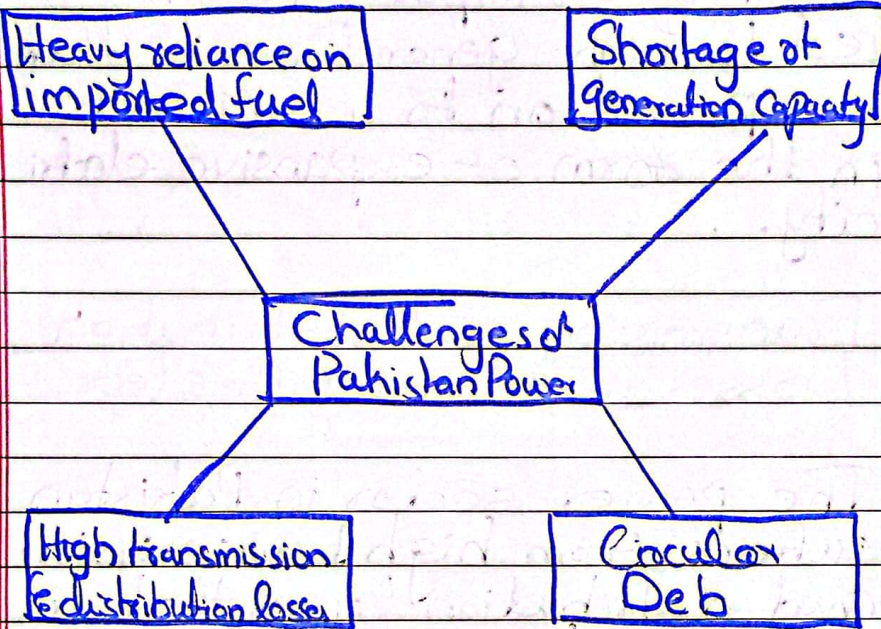 Heavy reliance on
imported fuel
Shortage of
generation Capacity
Challenges of
Pakistan Power
High transmission
& distribution losses
Circular
Deb